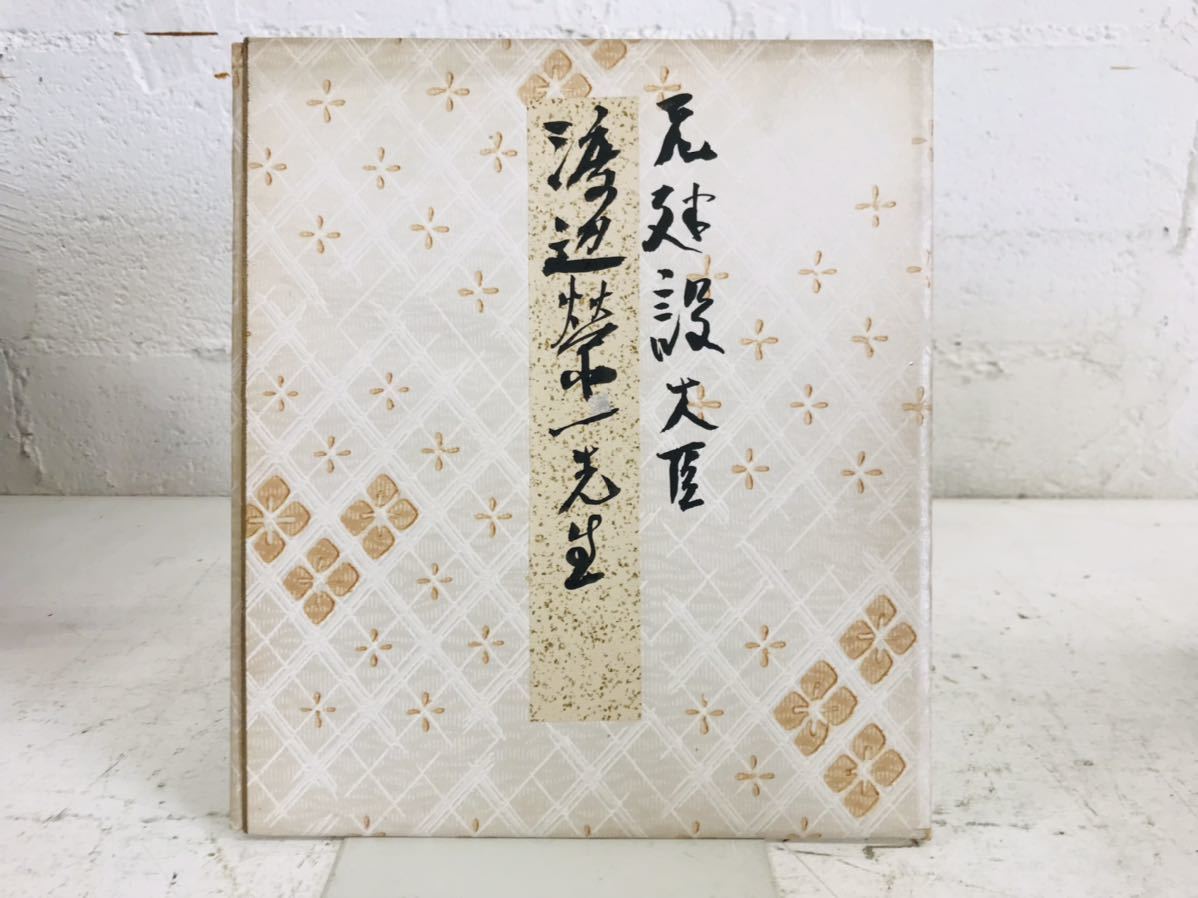 元建設大臣
渡辺栄一先生